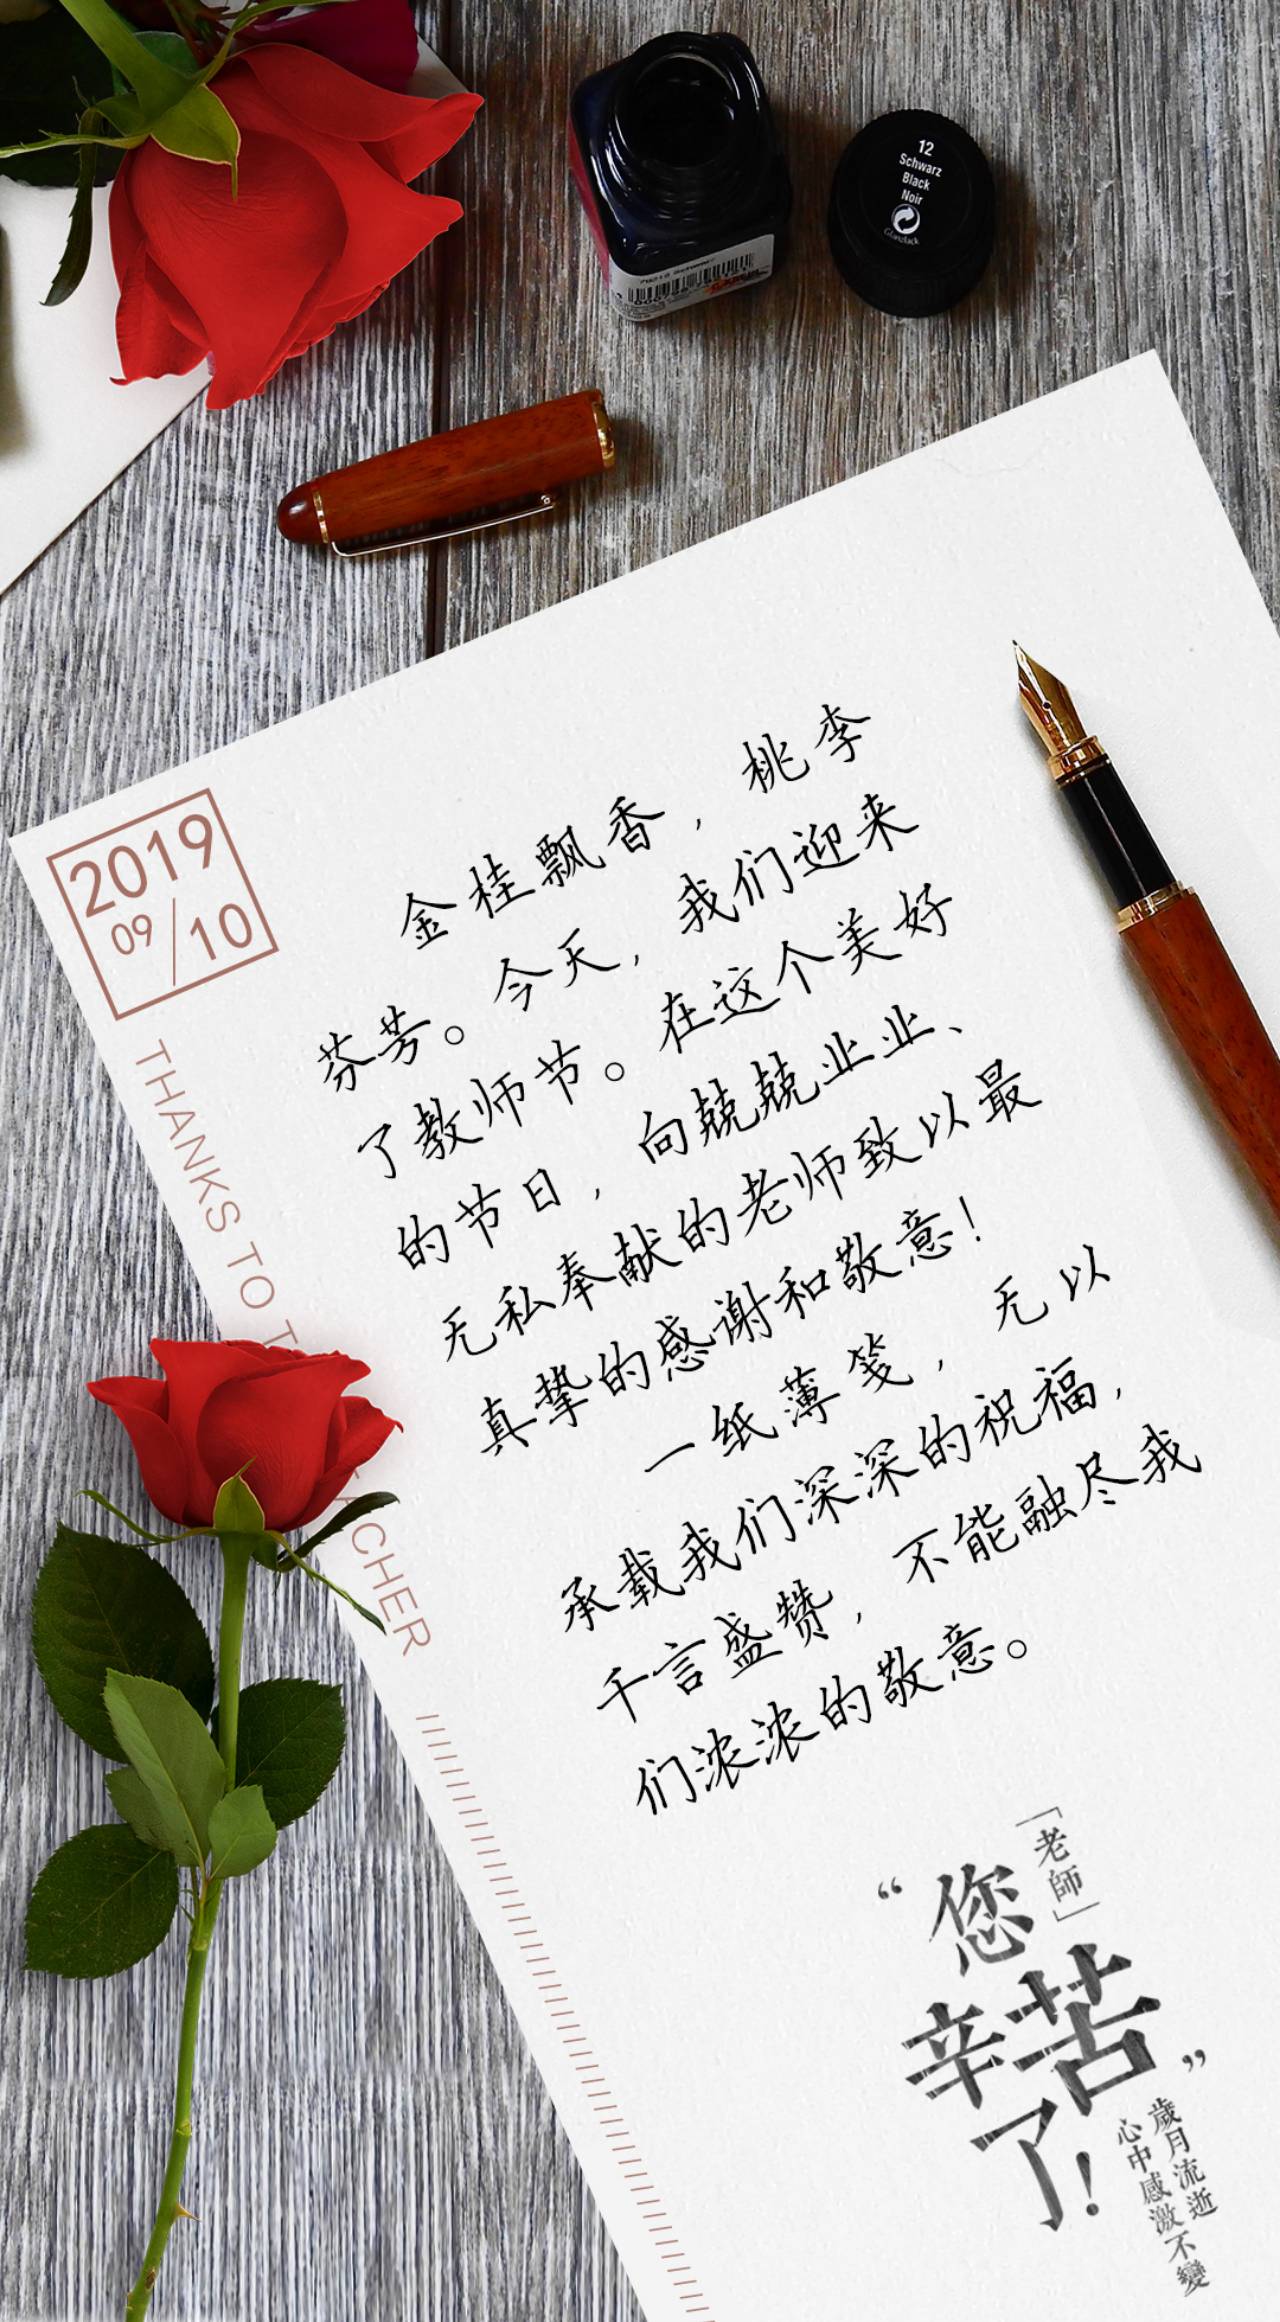 12
Schwarz
Black
Noir
Glanzlack
2019
09/10
THANKS TO T
CHER
金桂飘香，桃李
芬芳。今天，我们迎来
了教师节。在这个美好
的节日，向兢兢业业、
无私奉献的老师致以最
真挚的感谢和敬意！
一纸薄笺，无以
承载我们深深的祝福，
千言盛赞，不能融尽我
们浓浓的敬意。
「老師」
“您
辛苦
了！”
歲月流逝
心中感激不變